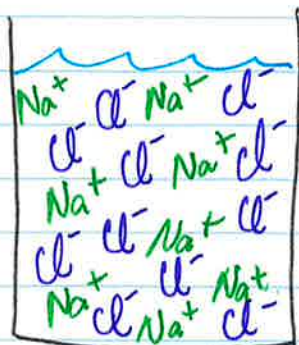 Na⁺ Cl⁻ Na⁺ Cl⁻
Cl⁻ Cl⁻ Na⁺ Cl⁻
Na⁺ Cl⁻ Na⁺ Cl⁻
Cl⁻ Cl⁻ Na⁺
Na⁺ Cl⁻ Na⁺ Cl⁻